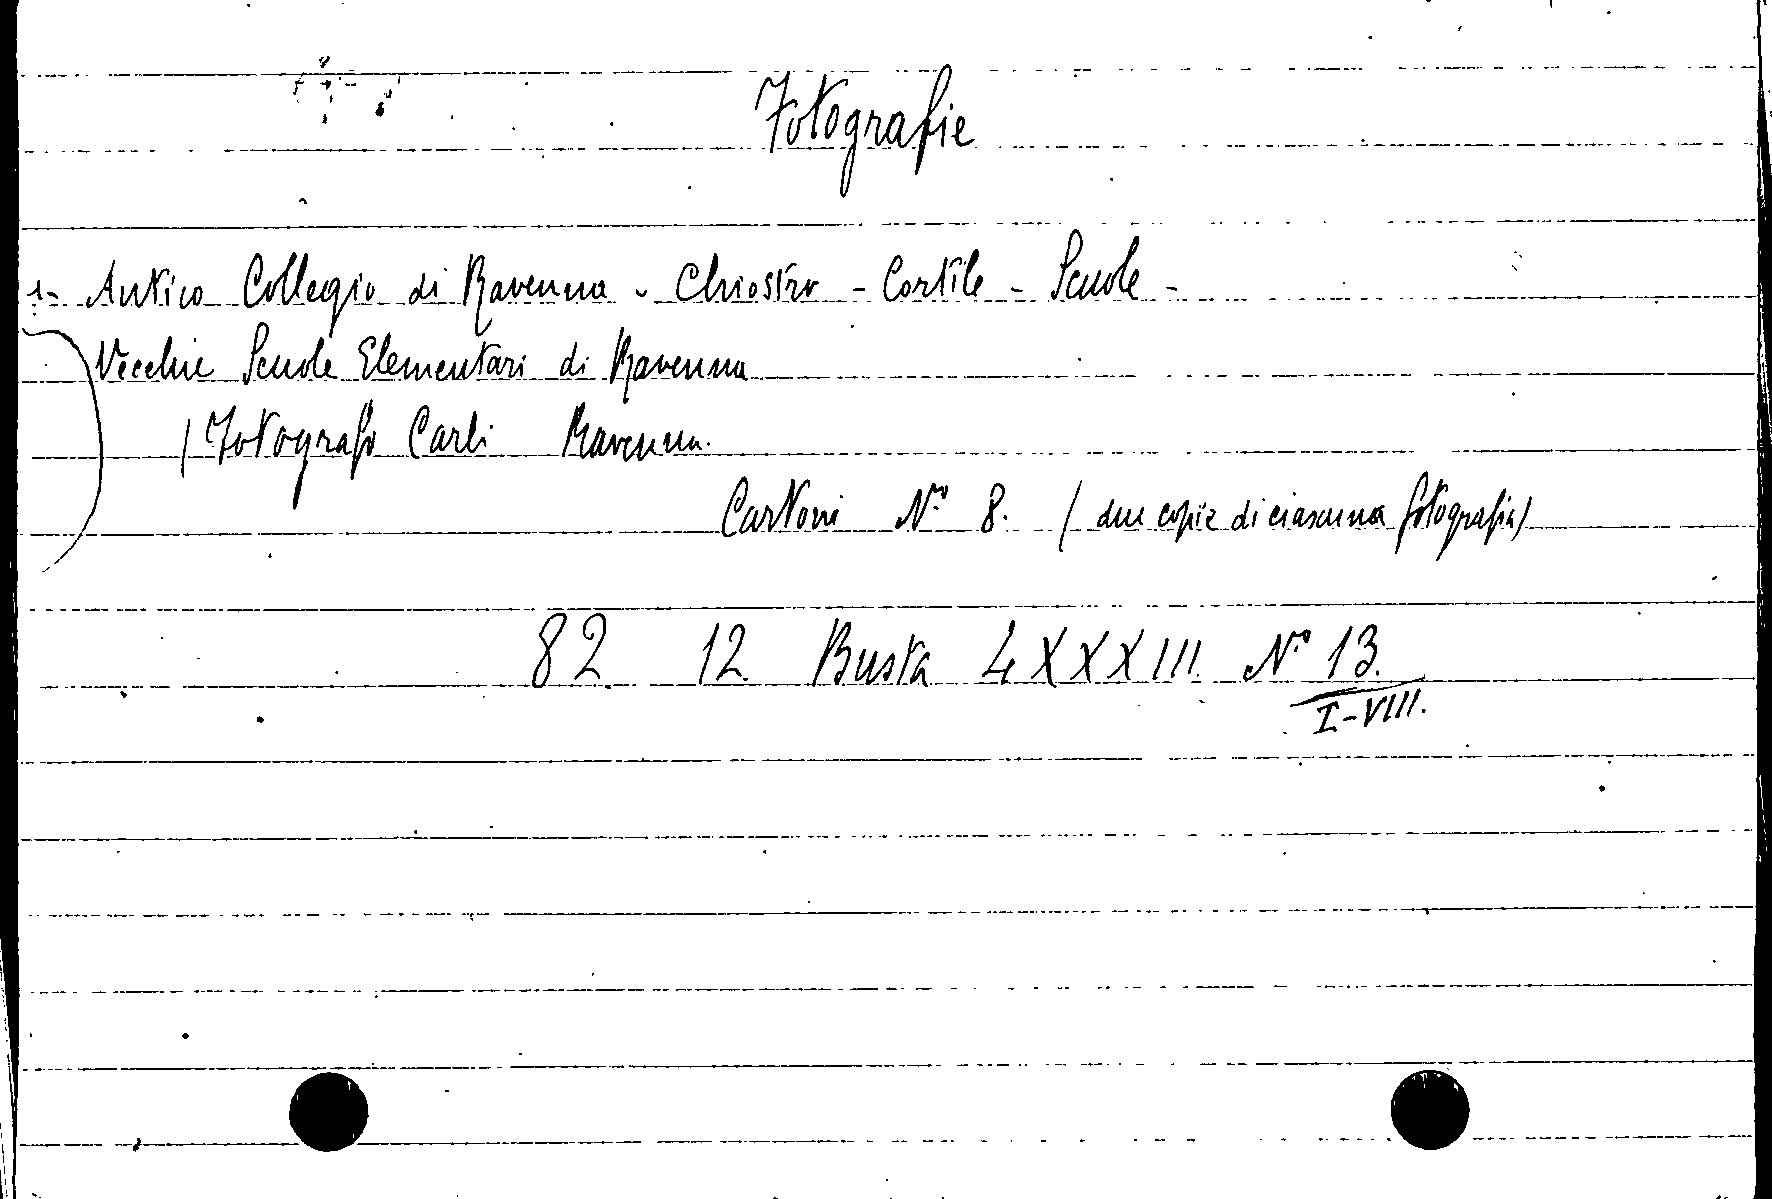 Fotografie
1- Antico Collegio di Ravenna - Chiostro - Cortile - Scuole -
Vecchie Scuole Elementari di Ravenna
(Fotografo Carli Ravenna.
Cartoni N.° 8. (due copie di ciascuna fotografia)
82 12 Busta 4XXXIII. N° 13.
I-VIII.